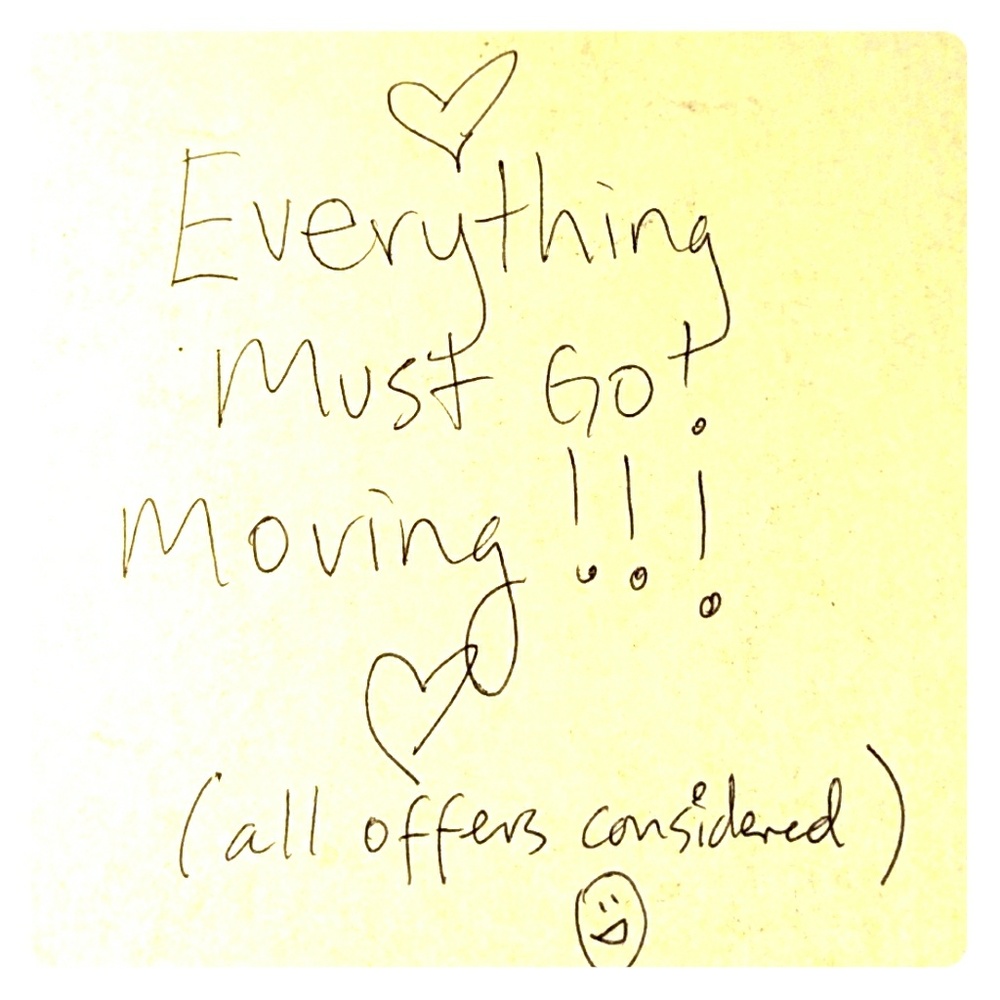 Everything
Must Go!
Moving !!!
(all offers considered)